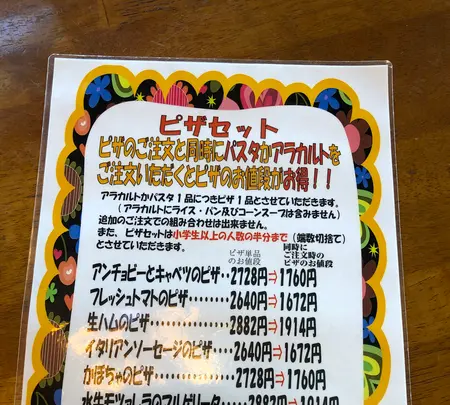 ピザセット
ピザのご注文と同時にパスタかアラカルトを
ご注文いただくとピザのお値段がお得！！
アラカルトかパスタ１品につきピザ１品とさせていただきます。
（アラカルトにライス・パン及びコーンスープは含みません）
追加のご注文での組み合わせは出来ません。
また、ピザセットは小学生以上の人数の半分まで（端数切捨て）
とさせていただきます。
ピザ単品のお値段
同時にご注文時のピザのお値段
アンチョビーとキャベツのピザ‥2728円⇒1760円
フレッシュトマトのピザ‥‥‥‥2640円⇒1672円
生ハムのピザ‥‥‥‥‥‥2882円⇒1914円
イタリアンソーセージのピザ‥2640円⇒1672円
かぼちゃのピザ‥‥‥‥‥2728円⇒1760円
水牛モツァレラのマルゲリータ‥‥2882円⇒1914円